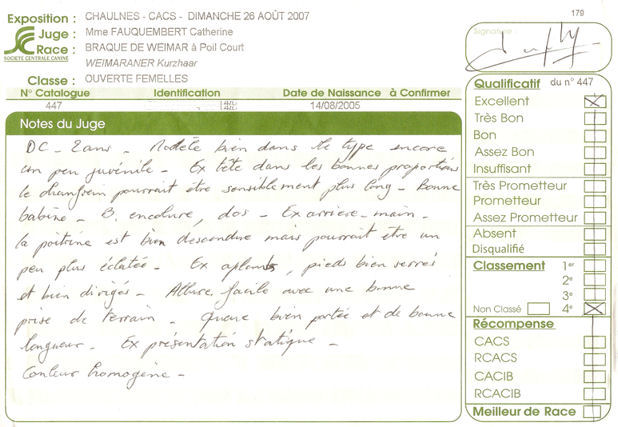 179
Exposition : CHAULNES - CACS - DIMANCHE 26 AOÛT 2007
Juge : Mme FAUQUEMBERT Catherine
Race : BRAQUE DE WEIMAR à Poil Court
WEIMARANER Kurzhaar
SOCIETE CENTRALE CANINE
Classe : OUVERTE FEMELLES
N° Catalogue Identification Date de Naissance à Confirmer
447 14/08/2005
Notes du Juge
DC - 2 ans - Modèle bien dans le type encore
un peu juvénile - Ex tête dans les bonnes proportions
le chanfrein pourrait être sensiblement plus long - Bonne
babine - B. encolure, dos - Ex arrière-main -
la poitrine est bien descendue mais pourrait être un
peu plus éclatée - Ex aplombs, pieds bien serrés
et bien dirigés - Allure facile avec une bonne
prise de terrain - Queue bien portée et de bonne
longueur - Ex présentation statique -
Couleur homogène -
Signature :
Qualificatif du n° 447
Excellent
Très Bon
Bon
Assez Bon
Insuffisant
Très Prometteur
Prometteur
Assez Prometteur
Absent
Disqualifié
Classement 1er
2e
3e
Non Classé 4e
Récompense
CACS
RCACS
CACIB
RCACIB
Meilleur de Race